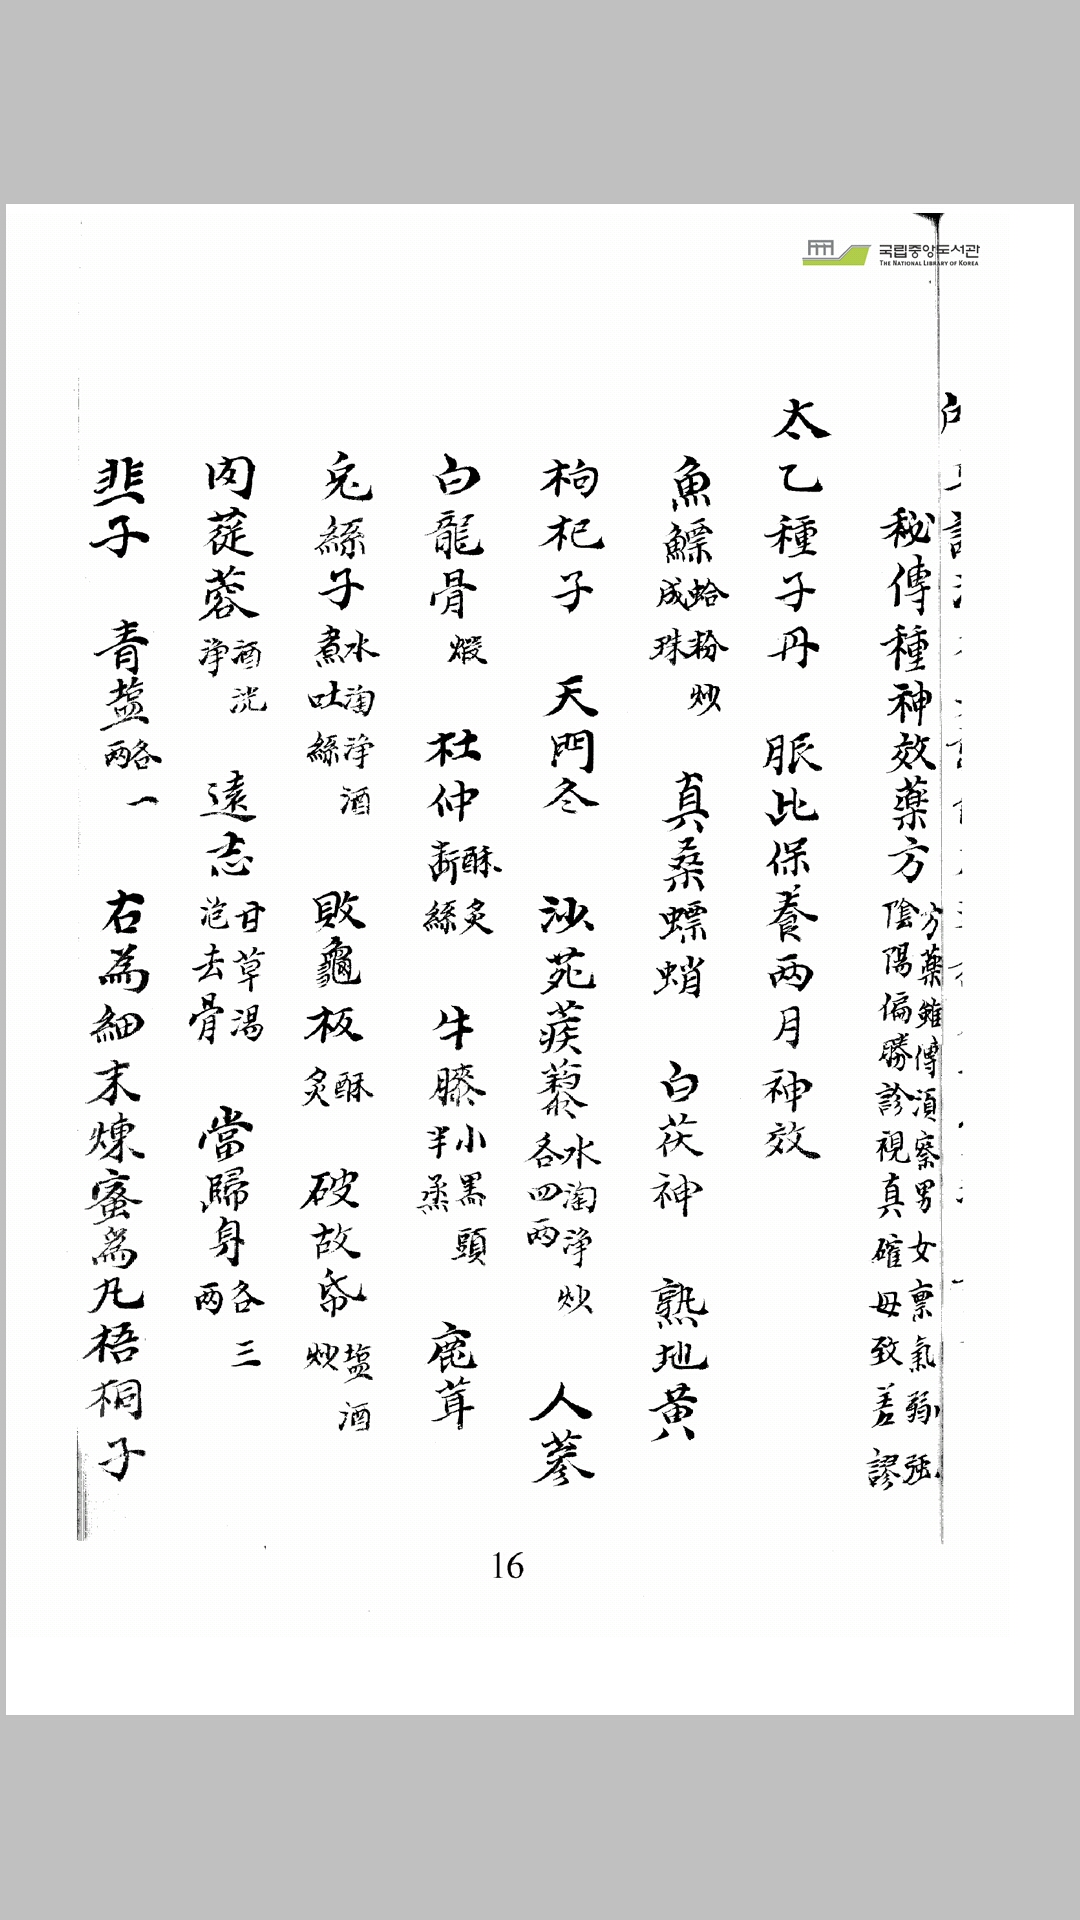 국립중앙도서관
THE NATIONAL LIBRARY OF KOREA
秘傳種神效藥方 方藥雖傳須察男女稟氣弱强陰陽偏勝診視真確毋致差謬
太乙種子丹 服比保養两月神效
魚鰾 蛤粉炒成珠 真桑螵蛸 白茯神 熟地黄
枸杞子 天門冬 沙苑蒺藜 水淘淨炒各四两 人蔘
白龍骨 煅 杜仲 酥炙斷絲 牛膝 小黑頭半蒸 鹿茸
兎絲子 水淘淨酒煮吐絲 敗龜板 酥炙 破故帋 塩酒炒
肉蓯蓉 酒洗淨 遠志 甘草湯泡去骨 當歸身 各三两
韭子 青盐 各一两 右為細末煉蜜為丸梧桐子
16